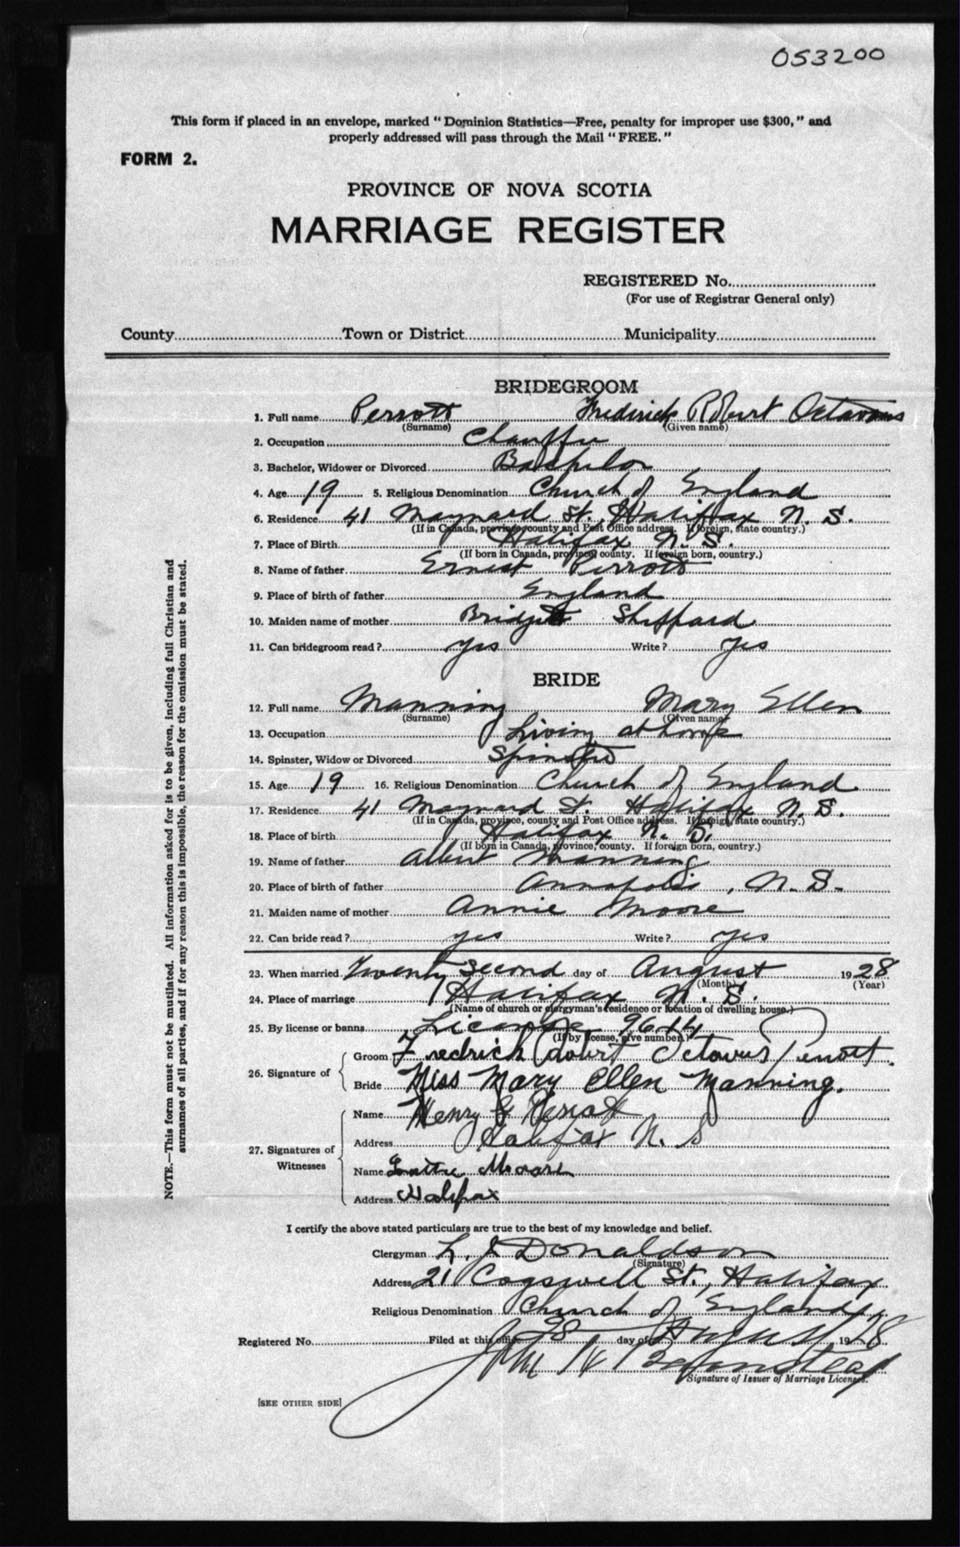 053200
This form if placed in an envelope, marked "Dominion Statistics—Free, penalty for improper use $300," and
properly addressed will pass through the Mail "FREE."
FORM 2.
PROVINCE OF NOVA SCOTIA
MARRIAGE REGISTER
REGISTERED No.
(For use of Registrar General only)
County Town or District Municipality
BRIDEGROOM
1. Full name Perrott Fredrick Robert Octavous
(Surname) (Given name)
2. Occupation Chauffer
3. Bachelor, Widower or Divorced Bachelor
4. Age 19 5. Religious Denomination Church of England
6. Residence 41 Maynard St. Halifax N. S.
(If in Canada, province, county and Post Office address. If foreign, state country.)
7. Place of Birth Halifax N. S.
(If born in Canada, province, county. If foreign born, country.)
8. Name of father Ernest Perrott
9. Place of birth of father England
10. Maiden name of mother Bridgett Sheppard
11. Can bridegroom read? yes Write? yes
BRIDE
12. Full name Manning Mary Ellen
(Surname) (Given name)
13. Occupation Living at home
14. Spinster, Widow or Divorced Spinster
15. Age 19 16. Religious Denomination Church of England
17. Residence 41 Maynard St. Halifax N. S.
(If in Canada, province, county and Post Office address. If foreign, state country.)
18. Place of birth Halifax N. S.
(If born in Canada, province, county. If foreign born, country.)
19. Name of father Albert Manning
20. Place of birth of father Annapolis, N. S.
21. Maiden name of mother Annie Moore
22. Can bride read? yes Write? yes
23. When married Twenty Second day of August 1928
(Month) (Year)
24. Place of marriage Halifax N. S.
(Name of church or clergyman's residence or location of dwelling house.)
25. By license or banns License 9644
(If by license, give number.)
26. Signature of Groom Fredrick Robert Octovus Perrott.
Bride Miss Mary Ellen Manning.
27. Signatures of Witnesses Name Henry
Address Halifax N. S
Name Moore
Address Halifax
I certify the above stated particulars are true to the best of my knowledge and belief.
Clergyman L. J Donaldson
(Signature)
Address 21 Cogswell St., Halifax
Religious Denomination Church of England
Registered No. Filed at this office 28 day of August 1928
John
Signature of Issuer of Marriage License.
[SEE OTHER SIDE]
NOTE.—This form must not be mutilated. All information asked for is to be given, including full Christian and
surnames of all parties, and if for any reason this is impossible, the reason for the omission must be stated.